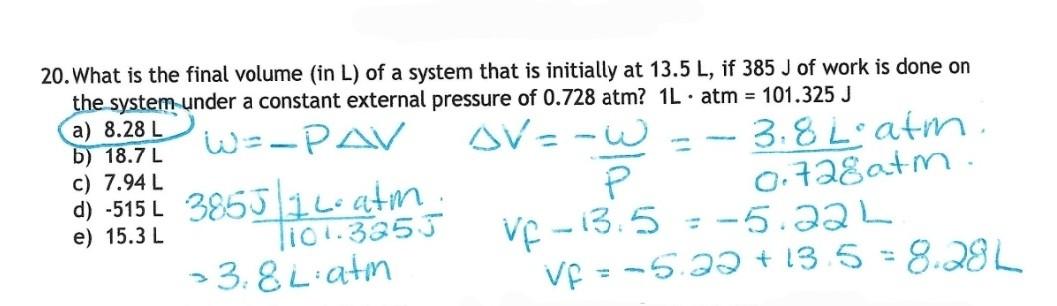 20. What is the final volume (in L) of a system that is initially at 13.5 L, if 385 J of work is done on
the system under a constant external pressure of 0.728 atm? 1L · atm = 101.325 J
a) 8.28 L
b) 18.7 L
c) 7.94 L
d) -515 L
e) 15.3 L
W = -PΔV
385J | 1 L·atm
| 101.325J
= 3.8 L·atm
ΔV = -W/P = - 3.8 L·atm / 0.728 atm
Vf - 13.5 = -5.22 L
Vf = -5.22 + 13.5 = 8.28L